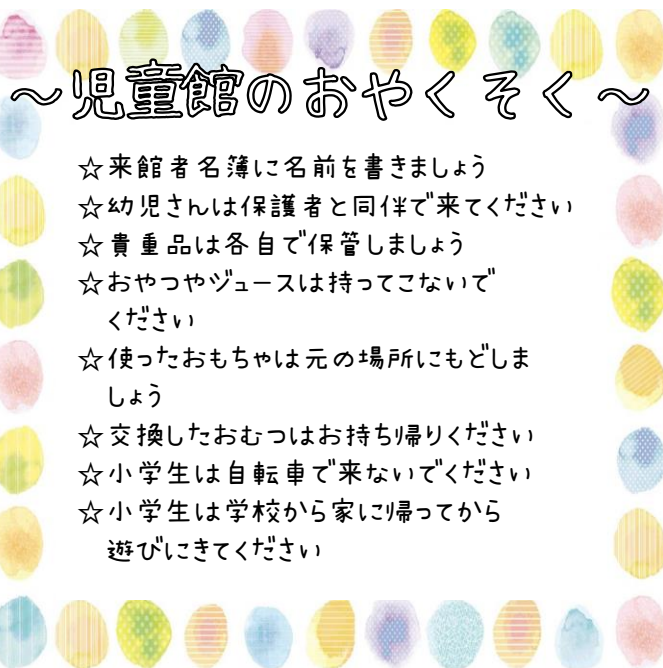 ～児童館のおやくそく～
☆来館者名簿に名前を書きましょう
☆幼児さんは保護者と同伴で来てください
☆貴重品は各自で保管しましょう
☆おやつやジュースは持ってこないで
ください
☆使ったおもちゃは元の場所にもどしま
しょう
☆交換したおむつはお持ち帰りください
☆小学生は自転車で来ないでください
☆小学生は学校から家に帰ってから
遊びにきてください